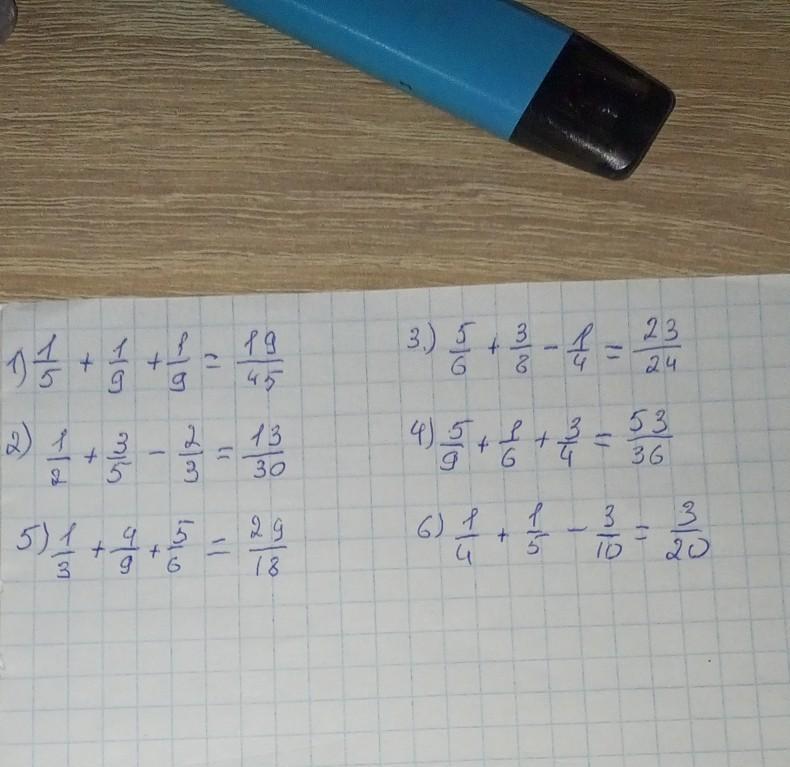 1) 1/5 + 1/9 + 1/9 = 19/45
3.) 5/6 + 3/8 - 1/4 = 23/24
2) 1/2 + 3/5 - 2/3 = 13/30
4) 5/9 + 1/6 + 3/4 = 53/36
5) 1/3 + 4/9 + 5/6 = 29/18
6) 1/4 + 1/5 - 3/10 = 3/20